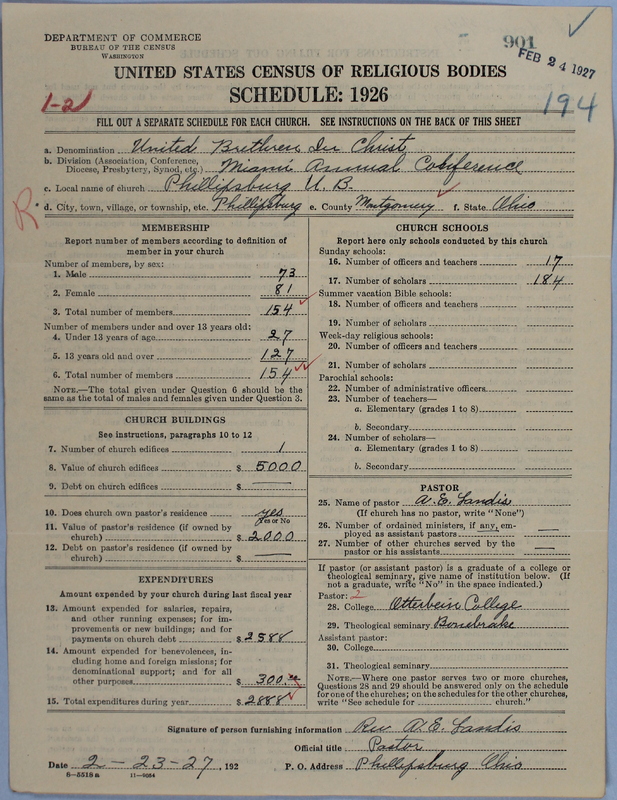 DEPARTMENT OF COMMERCE
BUREAU OF THE CENSUS
WASHINGTON
901
FEB 24 1927
UNITED STATES CENSUS OF RELIGIOUS BODIES
SCHEDULE: 1926
1-2
194
FILL OUT A SEPARATE SCHEDULE FOR EACH CHURCH. SEE INSTRUCTIONS ON THE BACK OF THIS SHEET
a. Denomination United Brethren In Christ
b. Division (Association, Conference, Diocese, Presbytery, Synod, etc.) Miami Annual Conference
c. Local name of church Phillipsburg U. B.
R
d. City, town, village, or township, etc. Phillipsburg e. County Montgomery f. State Ohio
MEMBERSHIP
Report number of members according to definition of
member in your church
Number of members, by sex:
1. Male 73
2. Female 81
3. Total number of members 154
Number of members under and over 13 years old:
4. Under 13 years of age 27
5. 13 years old and over 127
6. Total number of members 154
NOTE.—The total given under Question 6 should be
same as the total of males and females given under Question 3.
CHURCH BUILDINGS
See instructions, paragraphs 10 to 12
7. Number of church edifices 1
8. Value of church edifices $ 5000
9. Debt on church edifices $ —
10. Does church own pastor's residence yes
Yes or No
11. Value of pastor's residence (if owned by
church) $ 2000
12. Debt on pastor's residence (if owned by
church) $ —
EXPENDITURES
Amount expended by your church during last fiscal year
13. Amount expended for salaries, repairs,
and other running expenses; for im-
provements or new buildings; and for
payments on church debt $ 2588
14. Amount expended for benevolences, in-
cluding home and foreign missions; for
denominational support; and for all
other purposes $ 300.00
15. Total expenditures during year $ 2888
CHURCH SCHOOLS
Report here only schools conducted by this church
Sunday schools:
16. Number of officers and teachers 17
17. Number of scholars 184
Summer vacation Bible schools:
18. Number of officers and teachers
19. Number of scholars
Week-day religious schools:
20. Number of officers and teachers
21. Number of scholars
Parochial schools:
22. Number of administrative officers
23. Number of teachers—
a. Elementary (grades 1 to 8)
b. Secondary
24. Number of scholars—
a. Elementary (grades 1 to 8)
b. Secondary
PASTOR
25. Name of pastor A. E. Landis
(If church has no pastor, write "None")
26. Number of ordained ministers, if any, em-
ployed as assistant pastors —
27. Number of other churches served by the
pastor or his assistants —
If pastor (or assistant pastor) is a graduate of a college or
theological seminary, give name of institution below. (If
not a graduate, write "No" in the space indicated.)
Pastor: 2
28. College Otterbein College
29. Theological seminary Bonebrake
Assistant pastor:
30. College
31. Theological seminary
NOTE.—Where one pastor serves two or more churches,
Questions 28 and 29 should be answered only on the schedule
for one of the churches; on the schedules for the other churches,
write "See schedule for church."
Signature of person furnishing information Rev A. E. Landis
Official title Pastor
Date 2-23-27, 192 P. O. Address Phillipsburg Ohio
8—5518 a 11—9054